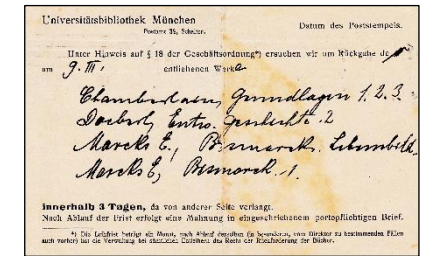 Universitätsbibliothek München
Postamt 34, Schalter.
Datum des Poststempels.
Unter Hinweis auf § 18 der Geschäftsordnung*) ersuchen wir um Rückgabe der
am 9. III. entliehenen Werke
Chamberlain, Grundlagen 1. 2. 3.
Doeberl, Entw. geschichte 2
Marcks E., Bismarck. Lebensbild.
Marcks E., Bismarck. 1.
innerhalb 3 Tagen, da von anderer Seite verlangt.
Nach Ablauf der Frist erfolgt eine Mahnung in eingeschriebenem portopflichtigen Brief.
*) Die Leihfrist beträgt ein Monat, nach Ablauf derselben (in besonderen, vom Direktor zu bestimmenden Fällen
auch vorher) hat die Verwaltung bei sämtlichen Entleihern das Recht der Rückforderung der Bücher.